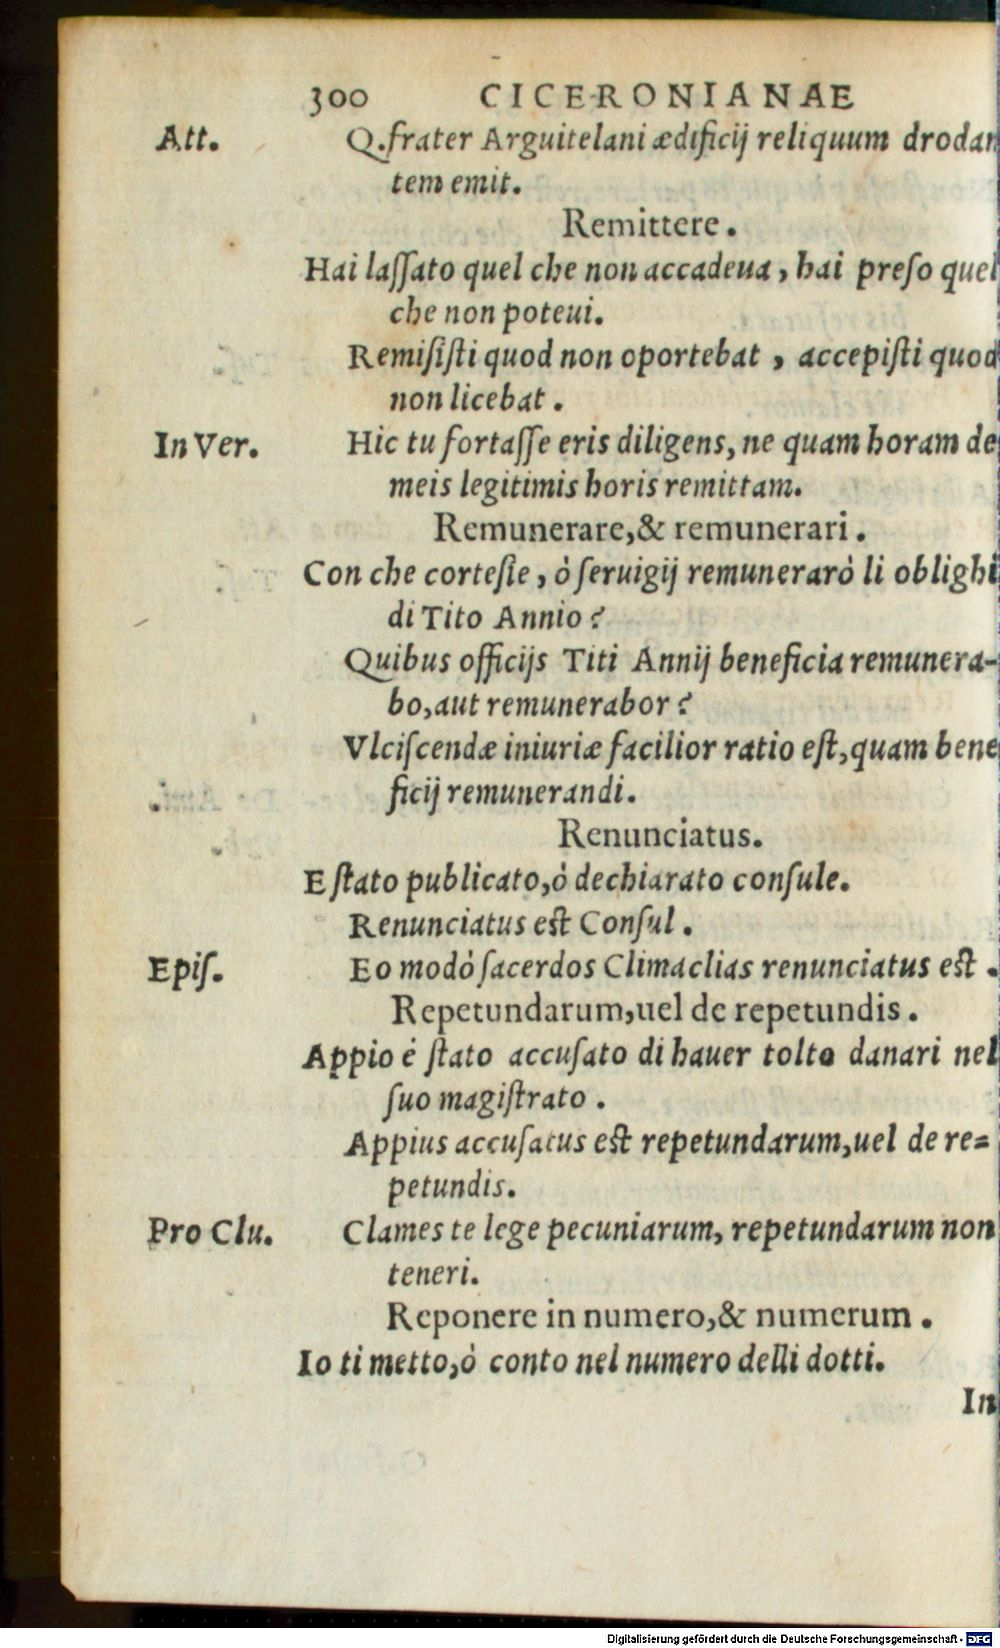 300 CICERONIANAE
Att. Q.frater Arguitelani ædificij reliquum drodan
tem emit.
Remittere.
Hai laſſato quel che non accadeua, hai preſo quel
che non poteui.
Remiſiſti quod non oportebat, accepiſti quod
non licebat.
In Ver. Hic tu fortaſſe eris diligens, ne quam horam de
meis legitimis horis remittam.
Remunerare,& remunerari.
Con che corteſie, ò ſeruigij remunerarò li oblighi
di Tito Annio?
Quibus officijs Titi Annij beneficia remunera-
bo,aut remunerabor?
Vlciſcendæ iniuriæ facilior ratio eſt,quam bene
ficij remunerandi.
Renunciatus.
E ſtato publicato,ò dechiarato conſule.
Renunciatus eſt Conſul.
Epiſ. Eo modò ſacerdos Climaclias renunciatus eſt.
Repetundarum,uel de repetundis.
Appio è ſtato accuſato di hauer tolto danari nel
ſuo magiſtrato.
Appius accuſatus eſt repetundarum,uel de re=
petundis.
Pro Clu. Clames te lege pecuniarum, repetundarum non
teneri.
Reponere in numero,& numerum.
Io ti metto,ò conto nel numero delli dotti.
In
Digitalisierung gefördert durch die Deutsche Forschungsgemeinschaft - DFG